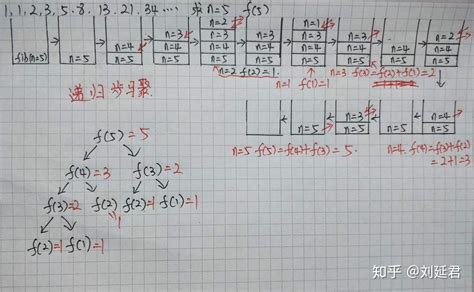 1, 1, 2, 3, 5, 8, 13, 21, 34 ···· 求 n=5 f(5)
n=2 n=1
n=3 n=3 n=3 n=3 n=3 n=2
n=4 n=4 n=4 n=4 n=4 n=4 n=4 n=4
fib(n=5) n=5 n=5 n=5 n=5 n=5 n=5 n=5 n=5 n=5 n=5
n=2 f(2)=1. n=1 f(1)=1 n=3 f(3)=f(2)+f(1)=2
递归步骤
n=3
n=4 n=4 n=4
n=5 n=5 n=5 n=5
f(5)=5
n=5 f(5)=f(4)+f(3)=5. n=4. f(4)=f(3)+f(2)
=2+1=3
f(4)=3 f(3)=2
f(3)=2 f(2) f(2)=1 f(1)=1
1
f(2)=1 f(1)=1
知乎 @刘延君